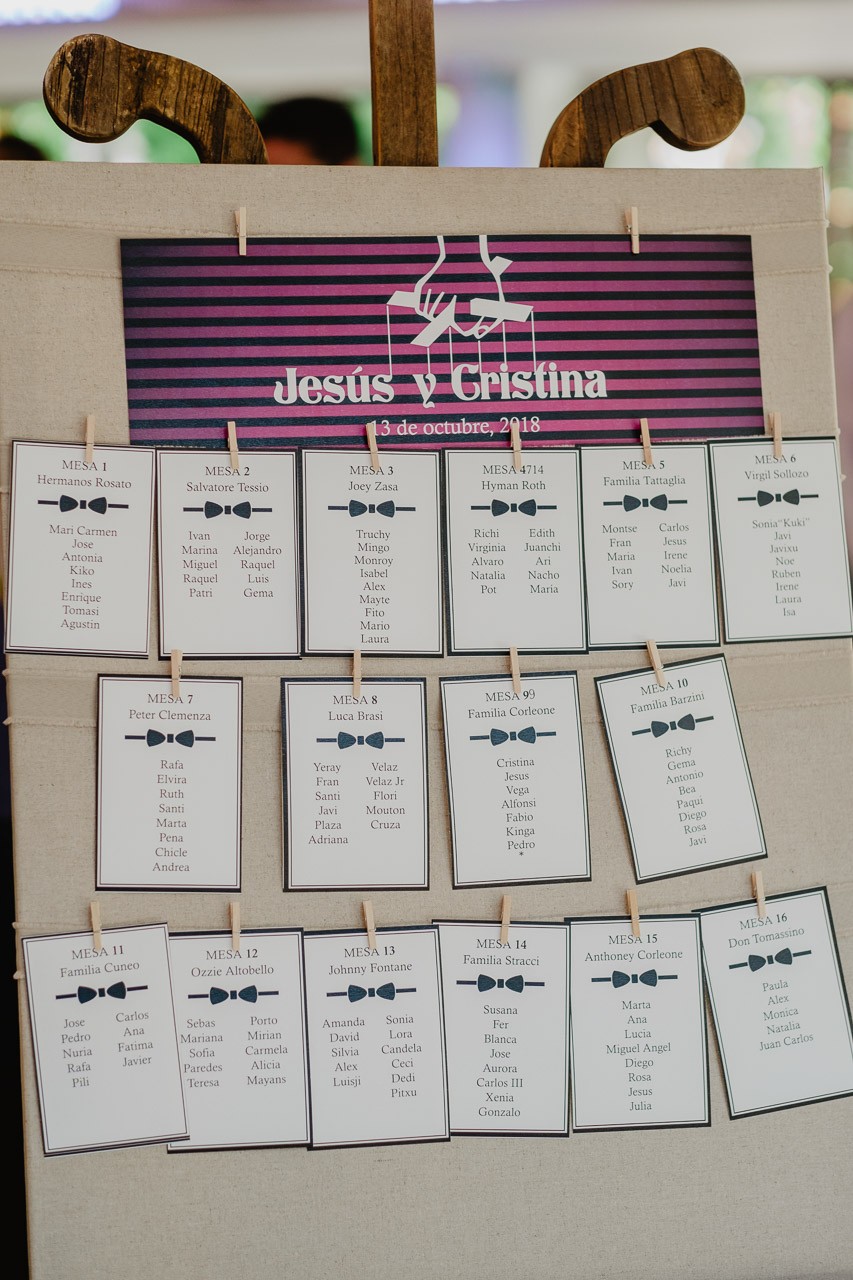 Jesús y Cristina
13 de octubre, 2018
MESA 1
Hermanos Rosato
Mari Carmen
Jose
Antonia
Kiko
Ines
Enrique
Tomasi
Agustin
MESA 2
Salvatore Tessio
Ivan Jorge
Marina Alejandro
Miguel Raquel
Raquel Luis
Patri Gema
MESA 3
Joey Zasa
Truchy
Mingo
Monroy
Isabel
Alex
Mayte
Fito
Mario
Laura
MESA 4714
Hyman Roth
Richi Edith
Virginia Juanchi
Alvaro Ari
Natalia Nacho
Pot Maria
MESA 5
Familia Tattaglia
Montse Carlos
Fran Jesus
Maria Irene
Ivan Noelia
Sory Javi
MESA 6
Virgil Sollozo
Sonia"Kuki"
Javi
Javixu
Noe
Ruben
Irene
Laura
Isa
MESA 7
Peter Clemenza
Rafa
Elvira
Ruth
Santi
Marta
Pena
Chicle
Andrea
MESA 8
Luca Brasi
Yeray Velaz
Fran Velaz Jr
Santi Flori
Javi Mouton
Plaza Cruza
Adriana
MESA 99
Familia Corleone
Cristina
Jesus
Vega
Alfonsi
Fabio
Kinga
Pedro
*
MESA 10
Familia Barzini
Richy
Gema
Antonio
Bea
Paqui
Diego
Rosa
Javi
MESA 11
Familia Cuneo
Jose Carlos
Pedro Ana
Nuria Fatima
Rafa Javier
Pili
MESA 12
Ozzie Altobello
Sebas Porto
Mariana Mirian
Sofia Carmela
Paredes Alicia
Teresa Mayans
MESA 13
Johnny Fontane
Amanda Sonia
David Lora
Silvia Candela
Alex Ceci
Luisji Dedi
Pitxu
MESA 14
Familia Stracci
Susana
Fer
Blanca
Jose
Aurora
Carlos III
Xenia
Gonzalo
MESA 15
Anthoney Corleone
Marta
Ana
Lucia
Miguel Angel
Diego
Rosa
Jesus
Julia
MESA 16
Don Tomassino
Paula
Alex
Monica
Natalia
Juan Carlos